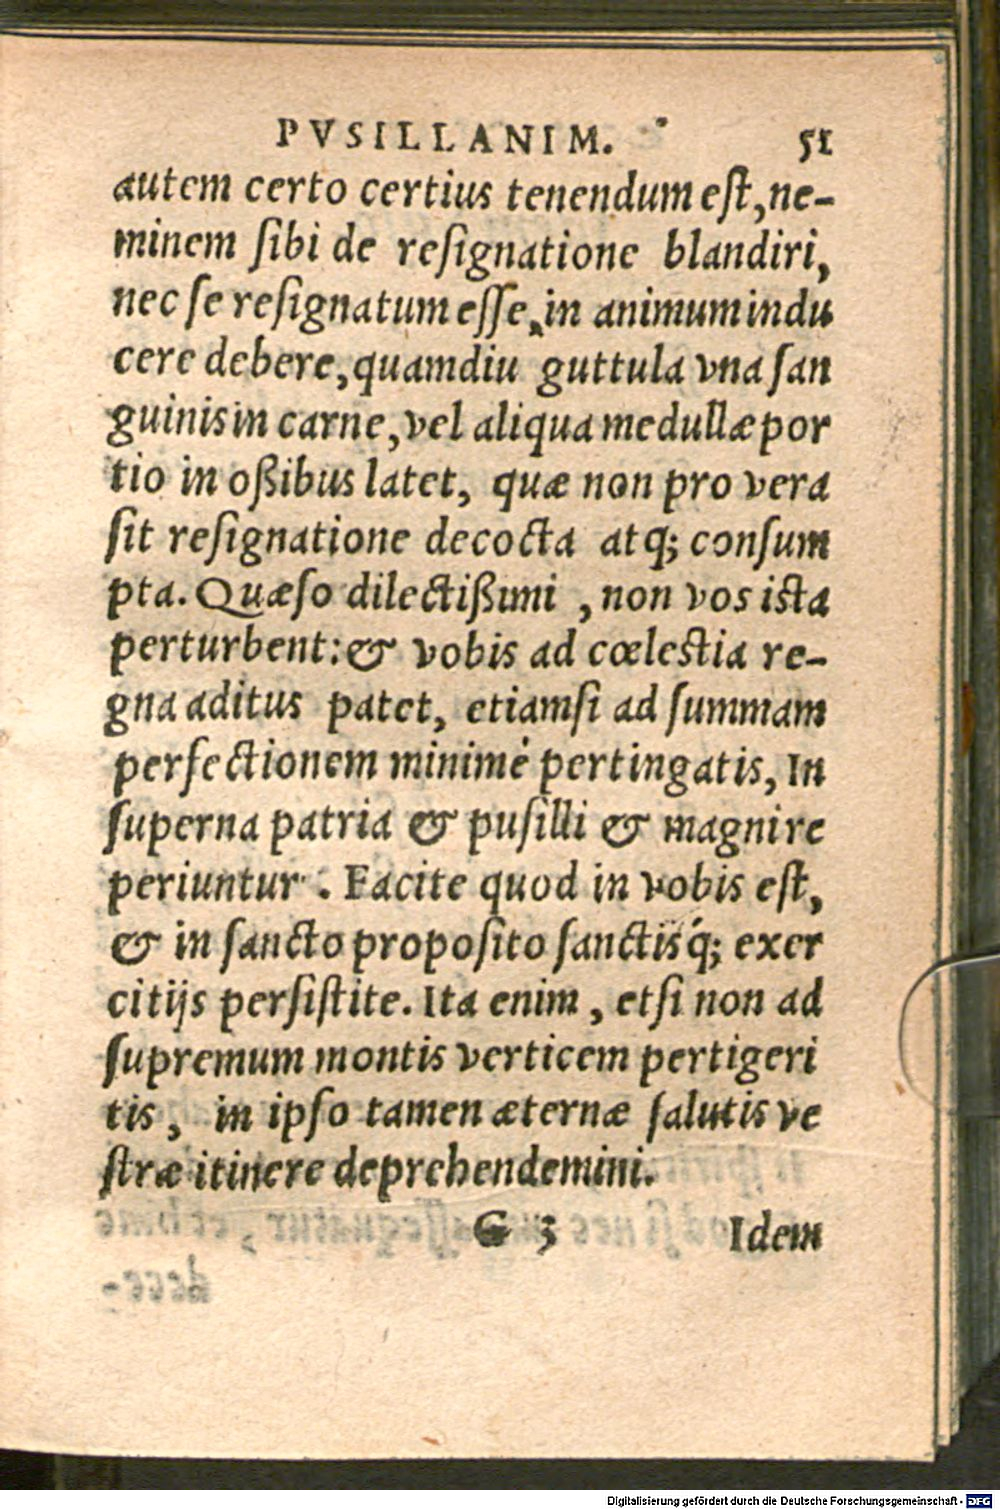 PVSILLANIM. 51
autem certo certius tenendum eſt, ne-
minem ſibi de reſignatione blandiri,
nec ſe reſignatum eſſe, in animum indu
cere debere, quamdiu guttula vna ſan
guinis in carne, vel aliqua medullæ por
tio in oßibus latet, quæ non pro vera
ſit reſignatione decocta atq; conſum
pta. Quæſo dilectißimi, non vos iſta
perturbent: & vobis ad cœleſtia re-
gna aditus patet, etiamſi ad ſummam
perfectionem minimè pertingatis, In
ſuperna patria & puſilli & magni re
periuntur. Facite quod in vobis eſt,
& in ſancto propoſito ſanctisq́; exer
citijs perſiſtite. Ita enim, etſi non ad
ſupremum montis verticem pertigeri
tis, in ipſo tamen æternæ ſalutis ve
ſtræ itinere deprehendemini.
G 3 Idem
Digitalisierung gefördert durch die Deutsche Forschungsgemeinschaft - DFG